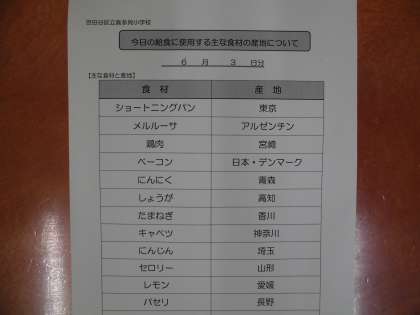 世田谷区立喜多見小学校
今日の給食に使用する主な食材の産地について
6 月 3 日分
【主な食材と産地】
食 材 産 地
ショートニングパン 東京
メルルーサ アルゼンチン
鶏肉 宮崎
ベーコン 日本・デンマーク
にんにく 青森
しょうが 高知
たまねぎ 香川
キャベツ 神奈川
にんじん 埼玉
セロリー 山形
レモン 愛媛
パセリ 長野